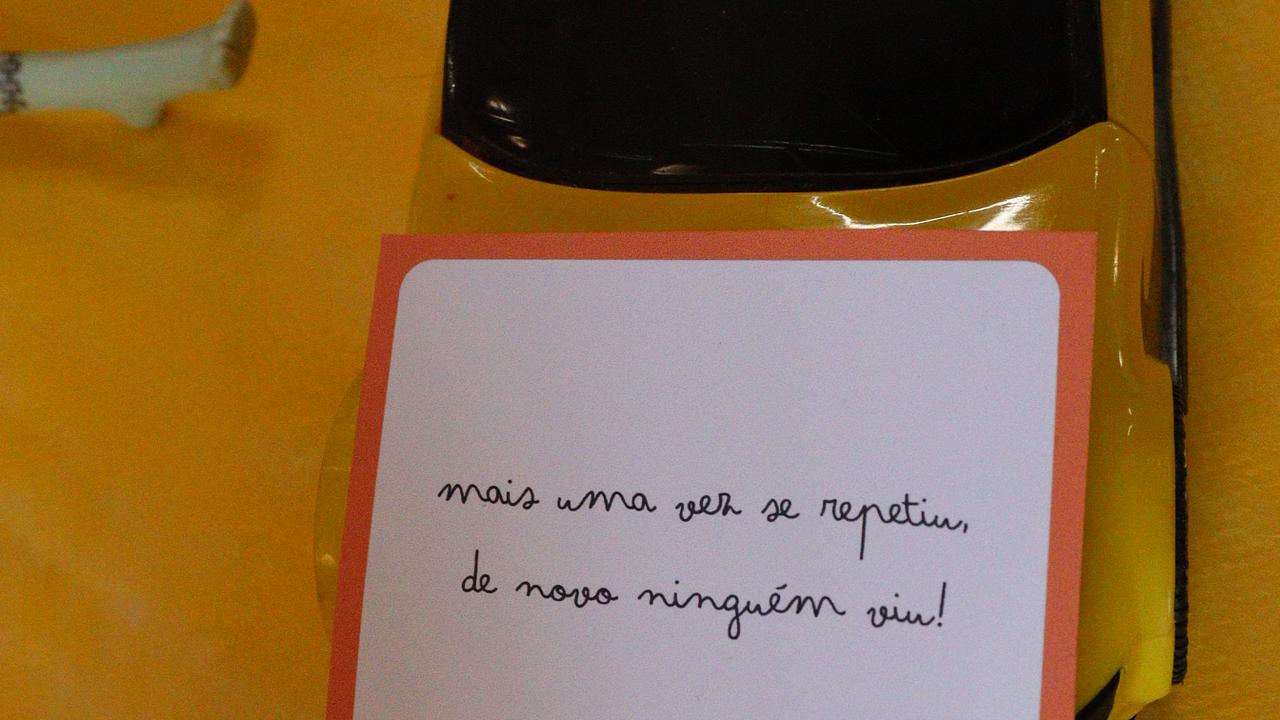 mais uma vez se repetiu,
de novo ninguém viu!